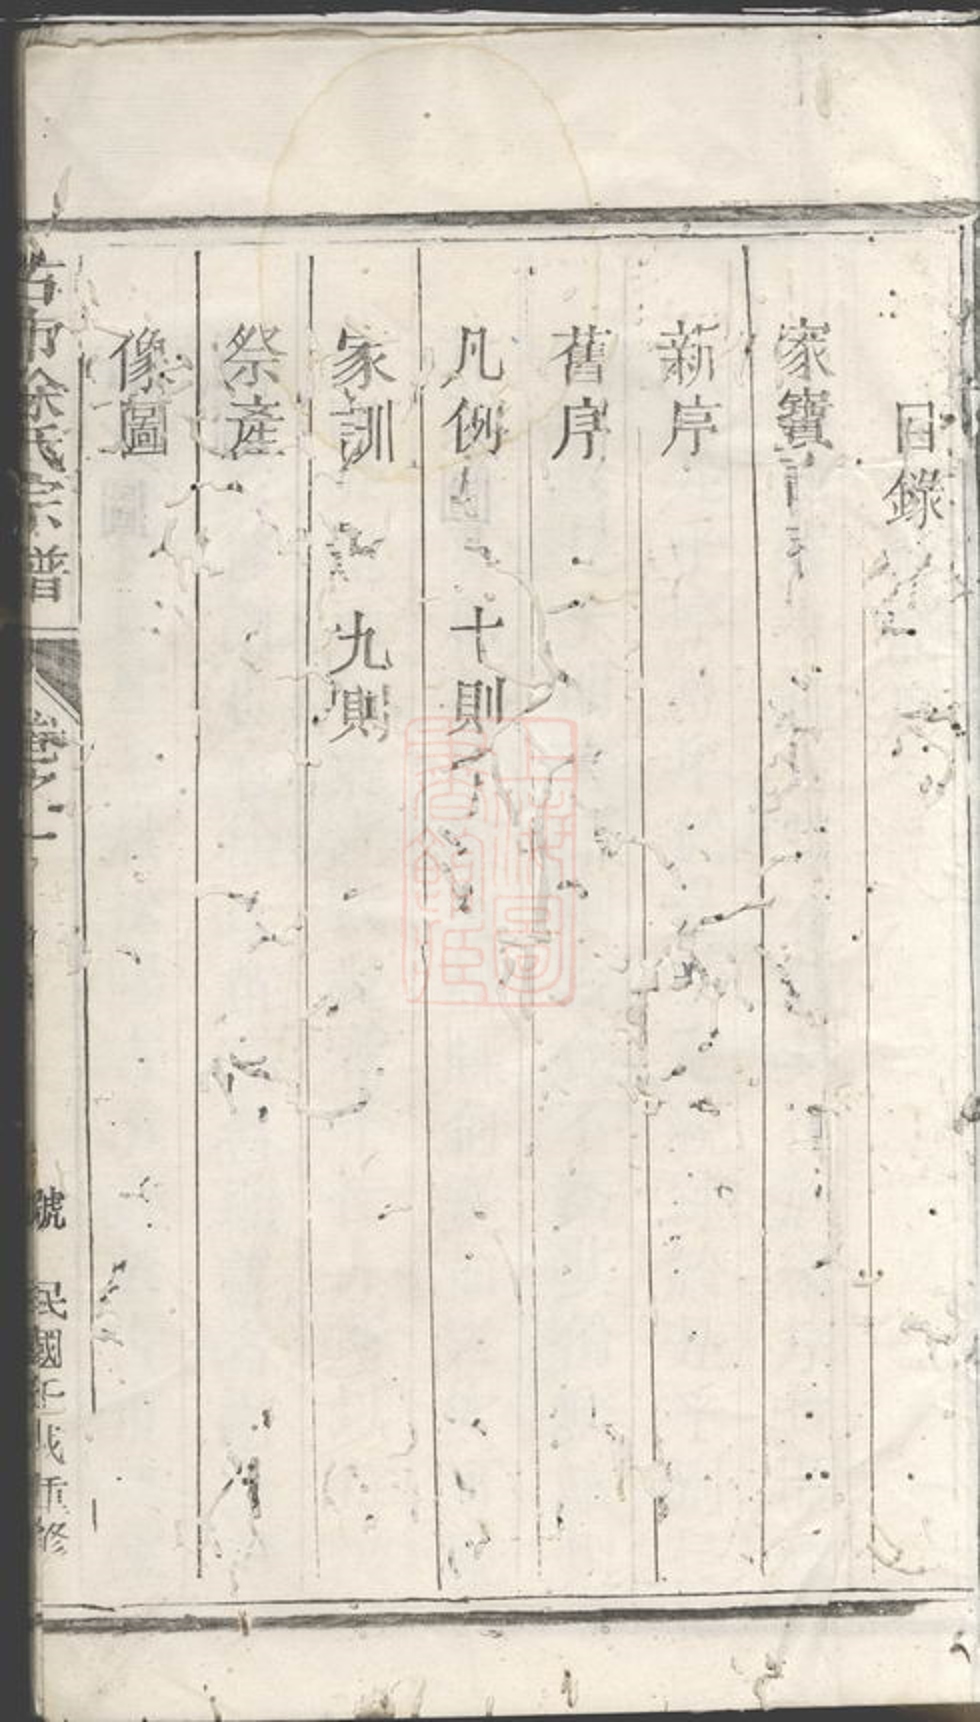 目錄
家寶
新序
舊序
凡例 十則
家訓 九則
祭產
像圖
徐氏宗譜
卷之一
號
民國壬戌重修
上海圖書館藏